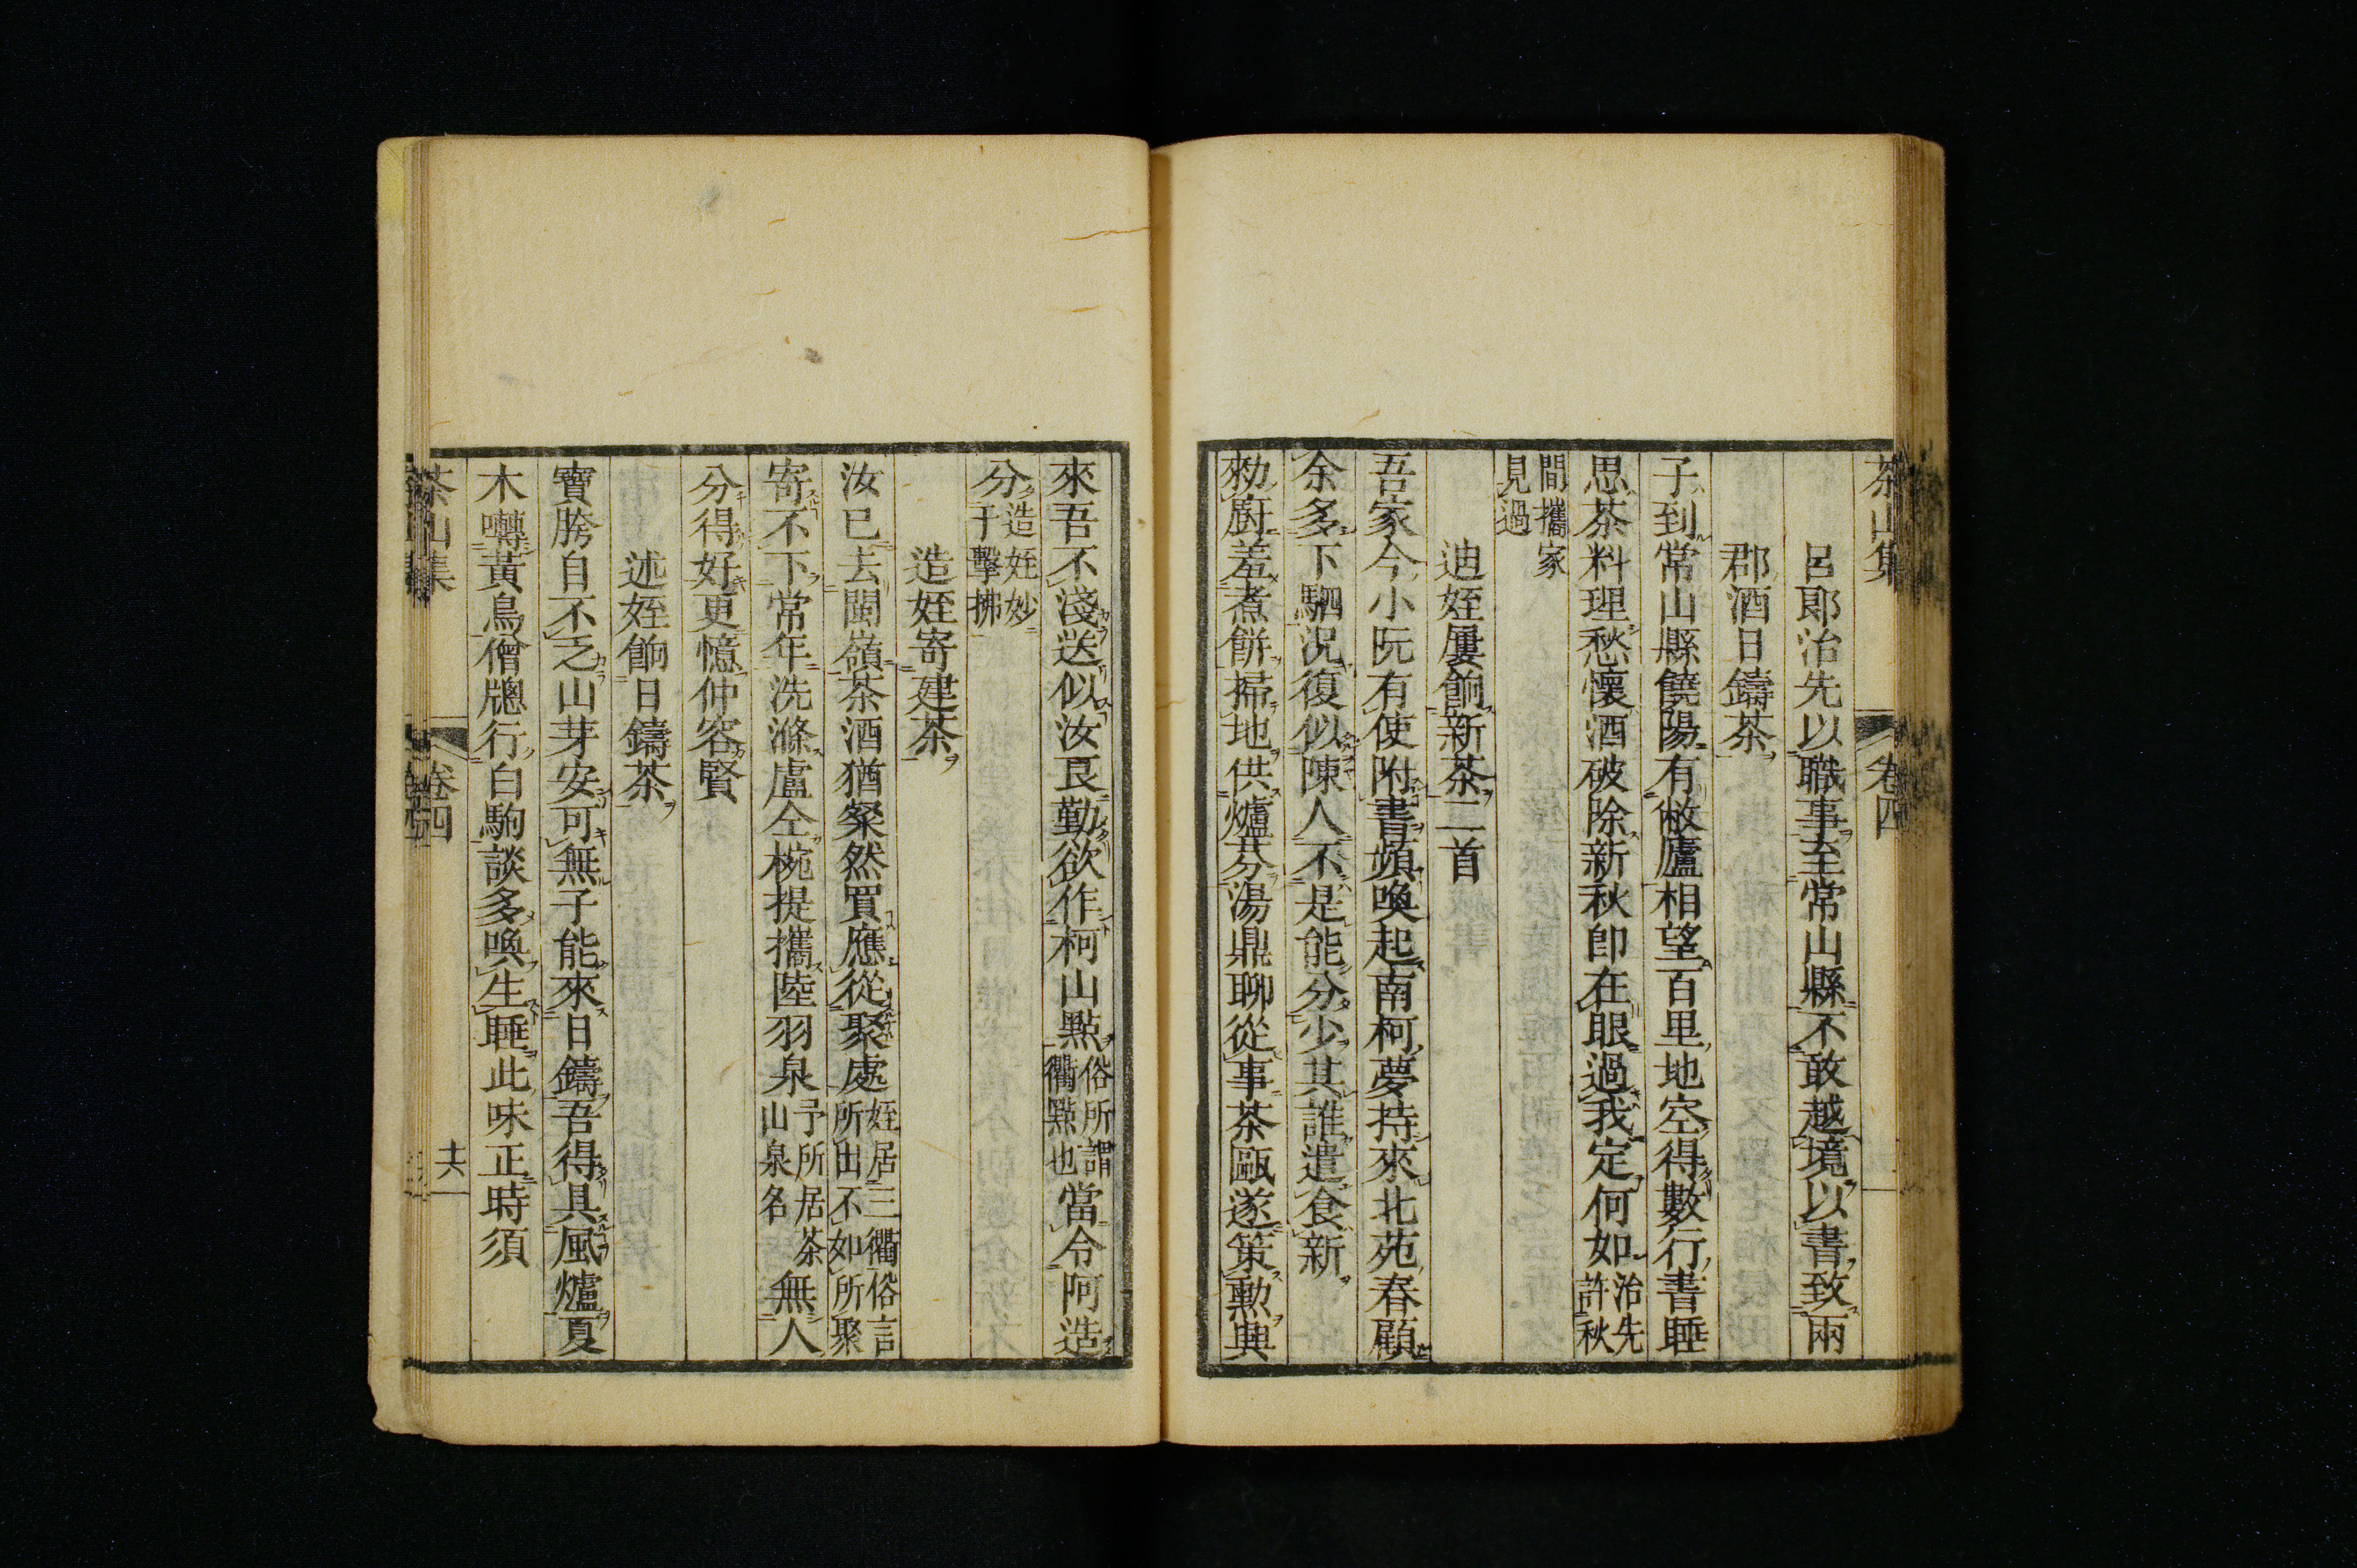 茶山集
卷四
呂郞治先以職事至常山縣不敢越境以書致兩
郡酒日鑄茶
子到常山縣饒陽有敝廬相望一百里地空得數行書睡
思茶料理愁懷酒破除新秋卽在眼過我定何如治先許秋
間攜家見過
迪姪屢餉新茶二首
吾家今小阮有使附書頻喚起南柯夢持來北苑春顧
余多下駟况復似陳人不是能分少其誰遣食新
勑廚羞煮餅掃地供爐芬湯鼎聊從事茶甌遂策勲與
來吾不淺送似汝良勤欲作柯山點俗所謂衢點也當令阿造
分造姪妙于擊拂
造姪寄建茶
汝已去閩嶺茶酒猶粲然買應從聚處姪居三衢俗言所出不如所聚
寄不下常年洗滌盧仝椀提攜陸羽泉予所居茶山泉名無人
分得好更憶仲容賢
述姪餉日鑄茶
寶胯自不乏山芽安可無子能來日鑄吾得具風爐夏
木囀黃鳥僧牕行白駒談多喚生睡此味正時須
茶山集
卷四
十六